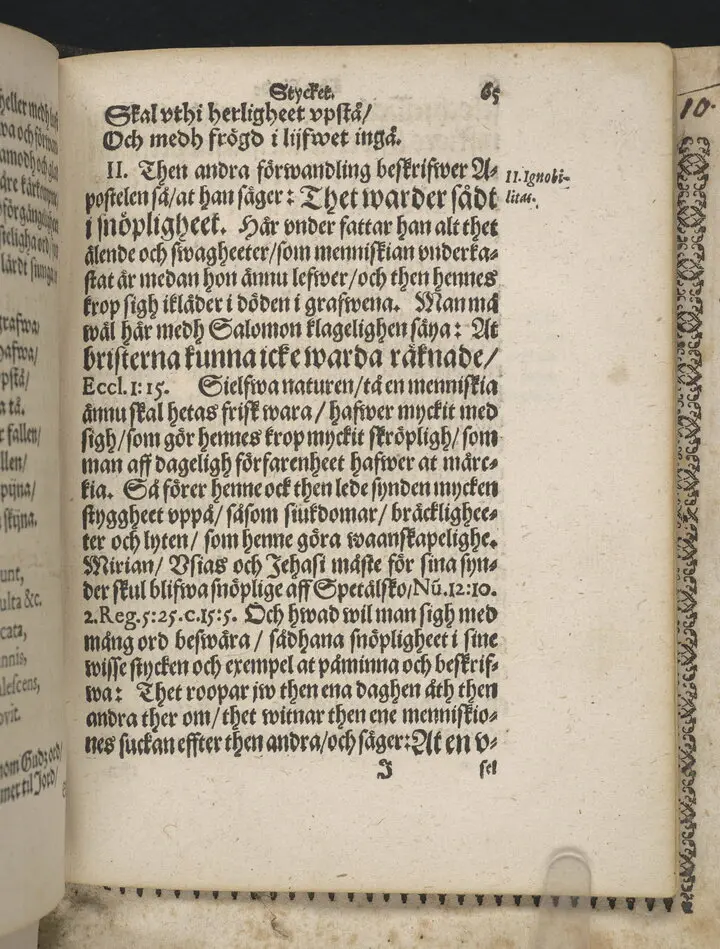 Stycket. 65
Skal vthi herligheet vpstå/
Och medh frögd i lijfwet ingå.
II. Then andra förwandling beskrifwer A-
postelen så/at han säger: Thet warder sådt
i snöpligheet. Här vnder fattar han alt thet
älende och swagheeter/som menniskian vnderka-
stat är medan hon ännu lefwer/och then hennes
krop sigh ikläder i döden i grafwena. Man må
wäl här medh Salomon klagelighen säya: At
bristerna kunna icke warda räknade/
Eccl. 1:15. Sielfwa naturen/tå en menniskia
ännu skal hetas frisk wara/hafwer myckit med
sigh/som gör hennes krop myckit skröpligh/som
man aff dageligh förfarenheet hafwer at märc-
kia. Så förer henne ock then lede synden mycken
styggheet vppå/såsom siukdomar/bräcklighee-
ter och lyten/som henne göra waanskapelighe.
Mirian/Vsias och Jehasi måste för sina syn-
der skul blifwa snöplige aff Spetälsko/Nū.12:10.
2.Reg.5:25.c.15:5. Och hwad wil man sigh med
mång ord beswära/sådhana snöpligheet i sine
wisse stycken och exempel at påminna och beskrif-
wa: Thet roopar jw then ena daghen åth then
andra ther om/thet witnar then ene menniskio-
nes suckan effter then andra/och säger: At en v-
J sel
II. Ignobi-
litas.
10
heller medh
wa och
amodh och
äre
förgänglig
lärdt
grafwa
hafwa/
pstå/
a tå.
r fallen/
llen/
pijna/
skijna.
unt,
ulta &c.
cata,
nnis,
alescens,
ovit.
nom Gudz ord/
met til Jord/